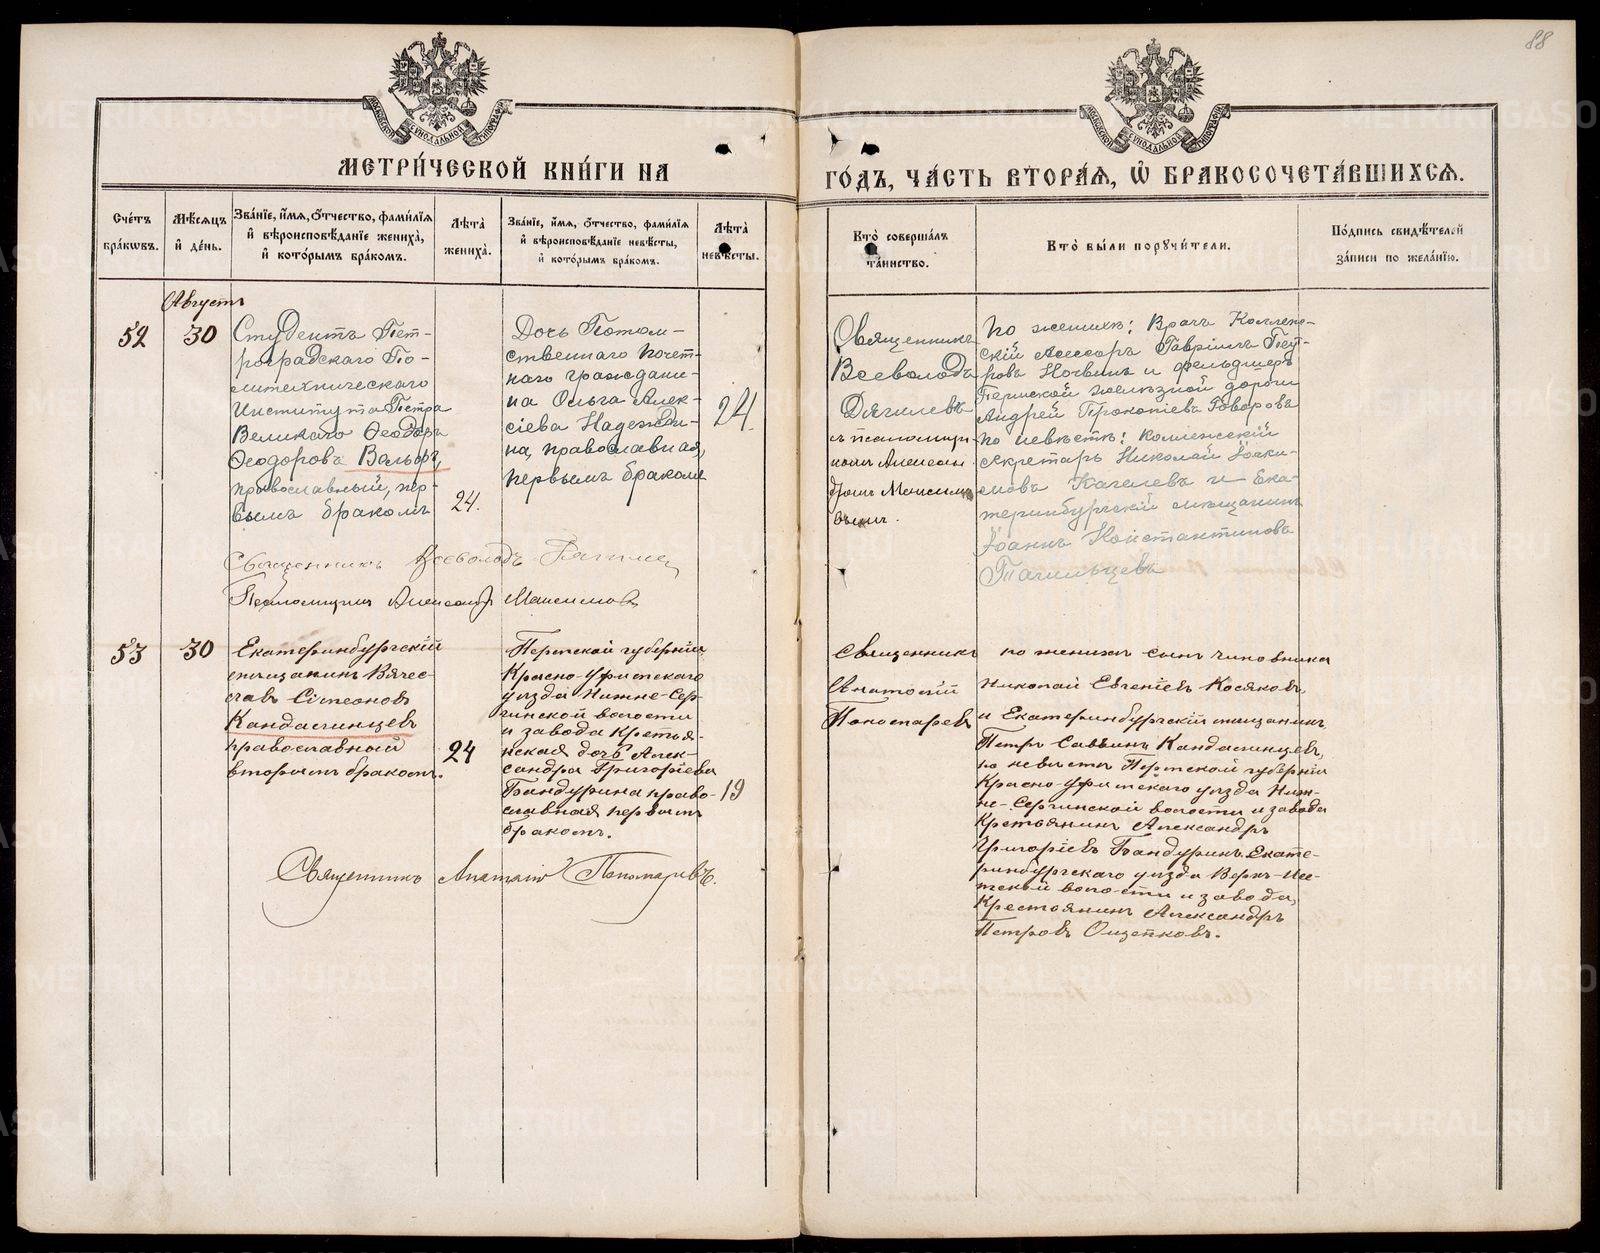 88
МЕТРИ́ЧЕСКОЙ КНИ́ГИ НА
ГО́ДЪ, ЧА́СТЬ ВТОРА́Я, Ѡ҆ БРАКОСОЧЕТА́ВШИХСЯ.
Сче́тъ бра́кѡвъ.
Мѣ́сяцъ и҆ де́нь.
Зва́нїе, и҆́мя, ѻ҆́тчество, фами́лїя и҆ вѣроисповѣ́данїе жениха̀, и҆ кото́рымъ бра́комъ.
Лѣ́та жениха̀.
Зва́нїе, и҆́мя, ѻ҆́тчество, фами́лїя и҆ вѣроисповѣ́данїе невѣ́сты, и҆ кото́рымъ бра́комъ.
Лѣ́та невѣ́сты.
Кто̀ соверша́лъ та́инство.
Кто̀ бы́ли порꙋчи́тели.
По́дпись свидѣ́телей за́писи по жела́нїю.
Августъ
52
30
Студентъ Пет-
роградскаго По-
литехническаго
Института Петра
Великаго Ѳеодоръ
Ѳеодоровъ Вольфъ,
православный, пер-
вымъ бракомъ
24.
Дочь Потом-
ственнаго Почет-
наго Граждани-
на Ольга Алек-
сіева Надежди-
на, православная,
первымъ бракомъ
24.
Священникъ
Всеволодъ
Дягилевъ
съ псаломщи-
комъ Алексан-
дромъ Максимо-
вымъ.
По женихѣ: Врачъ Коллеж-
скій Асессоръ Гавріилъ Пет-
ровъ Ночвинъ и фельдшеръ
Пермской желѣзной дороги
Андрей Прокопіевъ Говоровъ
По невѣстѣ: Коллежскій
секретарь Николай Іоаки-
мовъ Качалевъ и Ека-
теринбургскій мѣщанинъ
Іоаннъ Константиновъ
Тагильцевъ
Священникъ Всеволодъ Дягилевъ
Псаломщикъ Александръ Максимовъ
53
30
Екатеринбургскій
мѣщанинъ Вячес-
лавъ Сімеоновъ
Кандалинцевъ
православный
вторымъ бракомъ.
24
Пермской губерніи
Красно-Уфимскаго
уѣзда Нижне-Сер-
гинской волости
и завода крестья-
нская дочь Алек-
сандра Григоріева
Бандурина право-
славная первымъ
бракомъ.
19
Священникъ
Анатолій
Пономаревъ
по женихѣ сынъ чиновника
Николай Евгеніевъ Косяковъ,
и Екатеринбургскій мѣщанинъ
Петръ Саввинъ Кандалинцевъ,
по невѣстѣ Пермской губерніи
Красно-уфимскаго уѣзда Ниж-
не-Сергинской волости и завода
Крестьянинъ Александръ
Григоріевъ Бандуринъ. Екате-
ринбургскаго уѣзда Верхъ-Исе-
тской волости и завода,
Крестьянинъ Александръ
Петровъ Ощепковъ.
Священникъ Анатолій Пономаревъ.